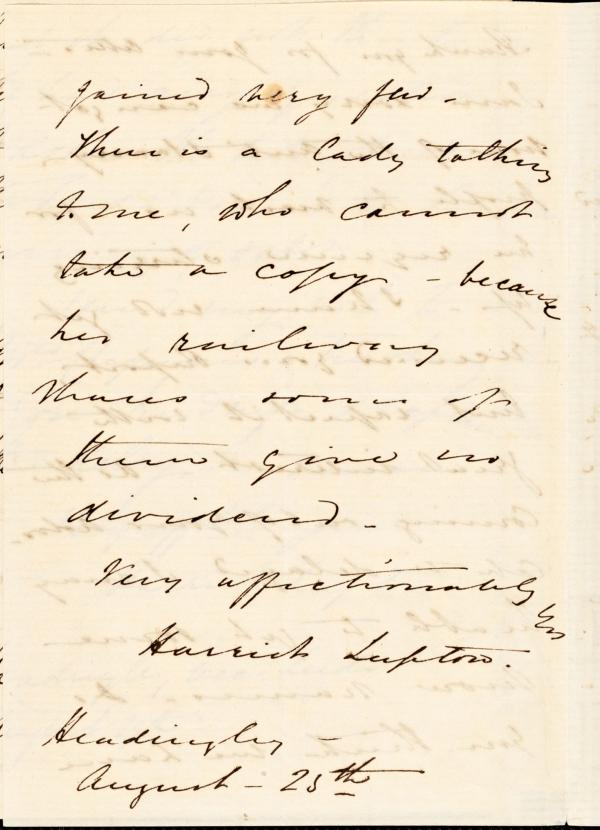 gained very few -
There is a Lady talking
to me, who cannot
take a copy - because
her railway
shares some of
them give no
dividend -
Very affectionately
yrs
Harriet Lupton.
Headingley -
August - 25th